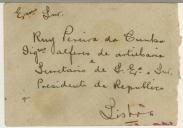 Exmo Snr.
Ruy Pereira da Cunha
Digmo alferes de artilharia
e
Secretario de S. Exa o Snr.
Presidente da Republica
Lisboa